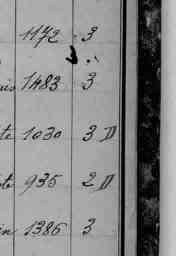 1172 3
1483 3
te 1030 3 D
te 935 2 D
in 1386 3